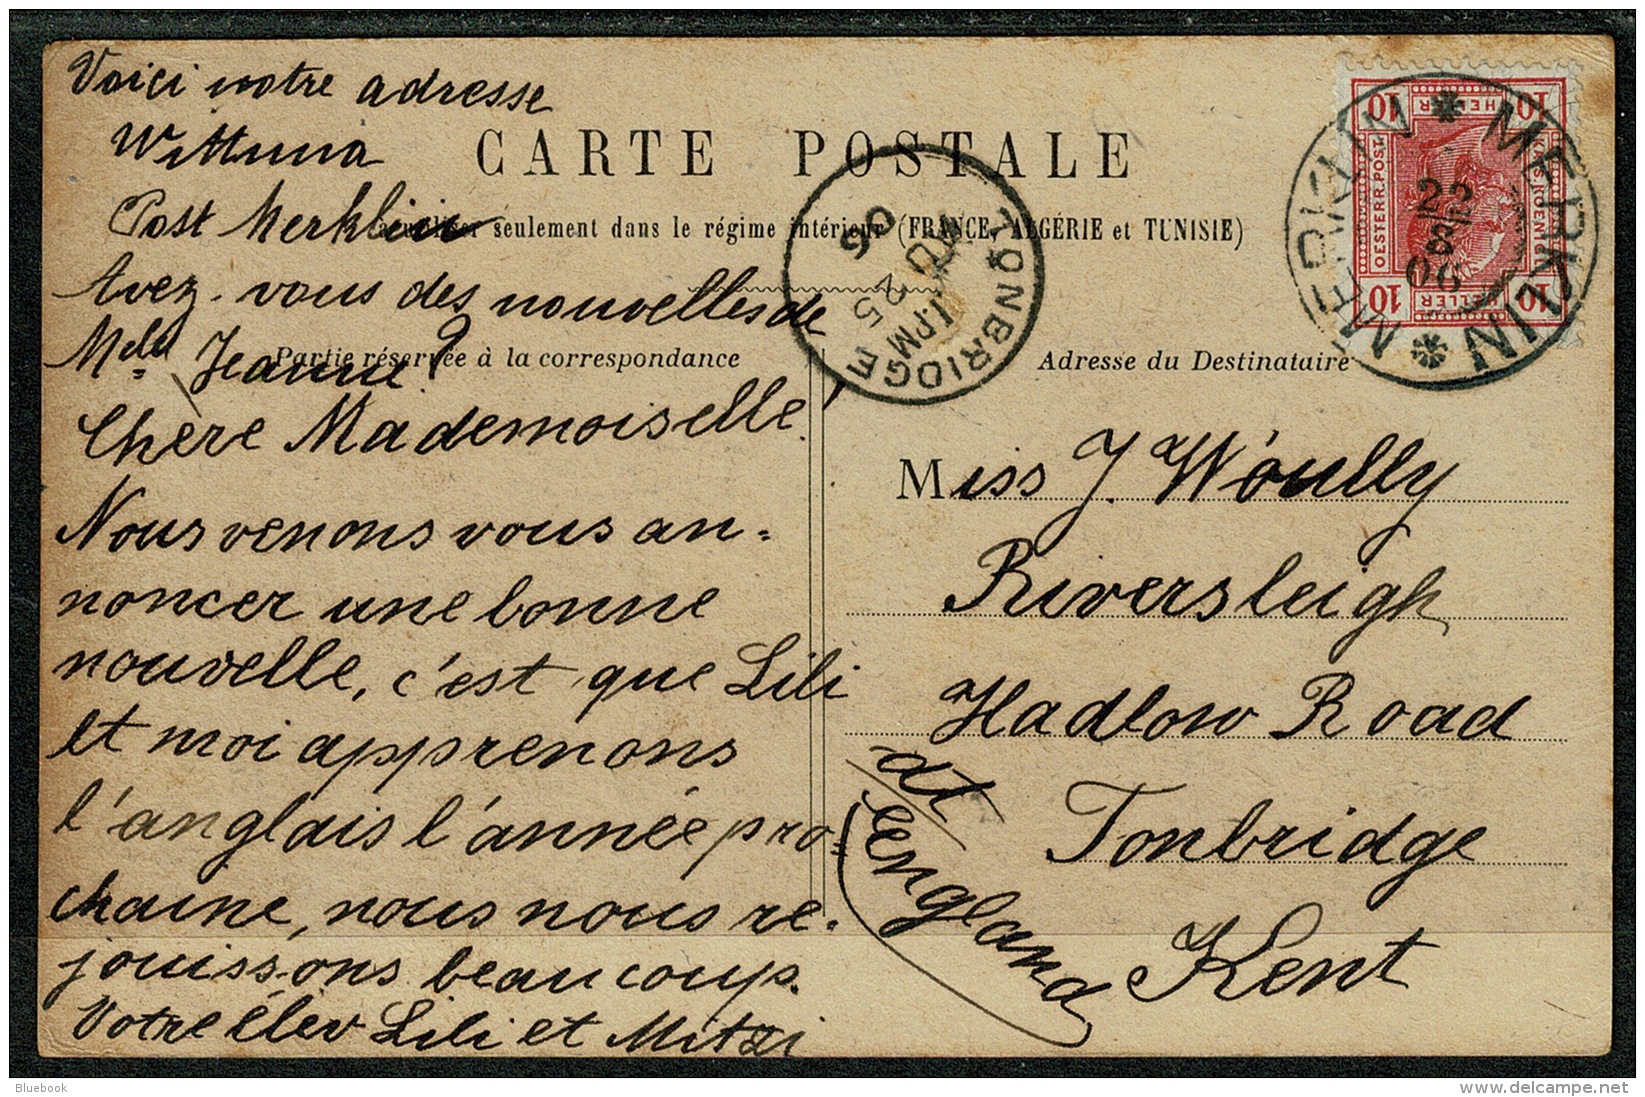 Voici notre adresse
Wittuna
Post Merklin
Avez-vous des nouvelles de
Melle Jeanne?
CARTE POSTALE
seulement dans le régime intérieur (FRANCE, ALGÉRIE et TUNISIE)
Partie réservée à la correspondance
Chère Mademoiselle!
Nous venons vous an-
noncer une bonne
nouvelle, c'est que Lili
et moi apprenons
l'anglais l'année pro=
chaine, nous nous re-
jouissons beaucoup.
Votre élev Lili et Mitzi
TONBRIDGE
1.PM
JU 25
06
MERKLIN * MERKLIN *
22
06
10 HELLER 10
KAIS. KOENIGL.
OESTERR. POST
10 HELLER 10
Adresse du Destinataire
Miss J. Woully
Riversleigh
Hadlow Road
Tonbridge
Kent
England
Bluebook
delcampe.net